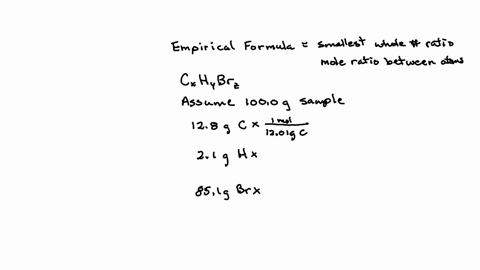 Empirical Formula = smallest whole # ratio
mole ratio between atoms
CxHyBrz
Assume 100.0 g sample
12.8 g C x 1 mol / 12.01 g C
2.1 g H x
85.1 g Br x